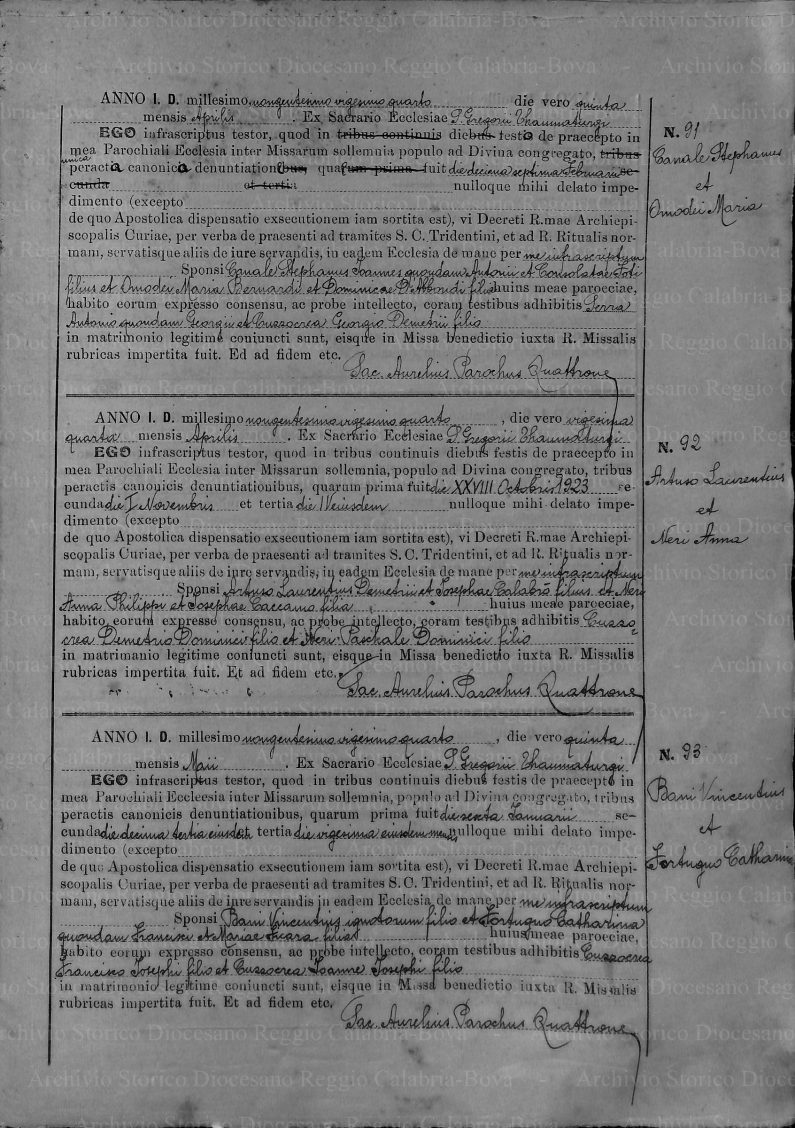 ANNO I. D. millesimo nongentesimo vigesimo quarto die vero quinta
mensis Aprilis. Ex Sacrario Ecclesiae S. Gregorii Thaumaturgi
EGO infrascriptus testor, quod in tribus continuis diebus festo de praecepto in
mea Parochiali Ecclesia inter Missarum sollemnia populo ad Divina congregato, tribus
unica
peracta canonica denuntiationibus, quarum prima fuit die decima septima Februarii se-
cunda et tertia nulloque mihi delato impe-
dimento (excepto
de quo Apostolica dispensatio exsecutionem iam sortita est), vi Decreti R.mae Archiepi-
scopalis Curiae, per verba de praesenti ad tramites S. C. Tridentini, et ad R. Ritualis nor-
mam, servatisque aliis de iure servandis, in eadem Ecclesia de mane per me infrascriptum
Sponsi Canale Stephanus Joannes quondam Antonii et Consolatae Foti
filius et Omodei Maria Bernardi et Dominicae filia huius meae paroeciae,
habito eorum expresso consensu, ac probe intellecto, coram testibus adhibitis Serra
Antonio quondam Georgii et Cussocrea Georgio Demetrii filio
in matrimonio legitime coniuncti sunt, eisque in Missa benedictio iuxta R. Missalis
rubricas impertita fuit. Ed ad fidem etc.
Sac. Aurelius Parochus Quattrone
N. 91
Canale Stephanus
et
Omodei Maria
ANNO I. D. millesimo nongentesimo vigesimo quarto, die vero vigesima
quarta mensis Aprilis. Ex Sacrario Ecclesiae S. Gregorii Thaumaturgi
EGO infrascriptus testor, quod in tribus continuis diebus festis de praecepto in
mea Parochiali Ecclesia inter Missarun sollemnia, populo ad Divina congregato, tribus
peractis canonicis denuntiationibus, quarum prima fuit die XXVIII Octobris 1923 se-
cunda die I Novembris et tertia die IV eiusdem nulloque mihi delato impe-
dimento (excepto
de quo Apostolica dispensatio exsecutionem iam sortita est), vi Decreti R.mae Archiepi-
scopalis Curiae, per verba de praesenti ad tramites S. C. Tridentini, et ad R. Ritualis nor-
mam, servatisque aliis de iure servandis, in eadem Ecclesia de mane per me infrascriptum
Sponsi Artuso Laurentius Demetrii et Josephae Calabrò filius et Neri
Anna Philippi et Josephae Caccamo filia huius meae paroeciae,
habito eorum expresso consensu, ac probe intellecto, coram testibus adhibitis Cusso-
crea Demetrio Dominici filio et Neri Paschale Dominici filio
in matrimonio legitime coniuncti sunt, eisque in Missa benedictio iuxta R. Missalis
rubricas impertita fuit. Et ad fidem etc.
Sac. Aurelius Parochus Quattrone
N. 92
Artuso Laurentius
et
Neri Anna
ANNO I. D. millesimo nongentesimo vigesimo quarto, die vero quinta
mensis Maii. Ex Sacrario Ecclesiae S. Gregorii Thaumaturgi.
EGO infrascriptus testor, quod in tribus continuis diebus festis de praecepto in
mea Parochiali Eccleesia inter Missarum sollemnia, populo ad Divina congregato, tribus
peractis canonicis denuntiationibus, quarum prima fuit die sexta Januarii se-
cunda die decima tertia eiusdem et tertia die vigesima eiusdem mensis nulloque mihi delato impe-
dimento (excepto
de quo Apostolica dispensatio exsecutionem iam sortita est), vi Decreti R.mae Archiepi-
scopalis Curiae, per verba de praesenti ad tramites S. C. Tridentini, et ad R. Ritualis nor-
mam, servatisque aliis de iure servandis in eadem Ecclesia de mane per me infrascriptum
Sponsi Bani Vincentius ignotorum filio et Fortugno Catharina
quondam Francisci et Mariae filia huius meae paroeciae,
habito eorum expresso consensu, ac probe intellecto, coram testibus adhibitis Cussocrea
Francisco Josephi filio et Cussocrea Joanne Josephi filio
in matrimonio legitime coniuncti sunt, eisque in Missa benedictio iuxta R. Missalis
rubricas impertita fuit. Et ad fidem etc.
Sac. Aurelius Parochus Quattrone
N. 93
Bani Vincentius
et
Fortugno Catharina
Archivio Storico Diocesano Reggio Calabria-Bova